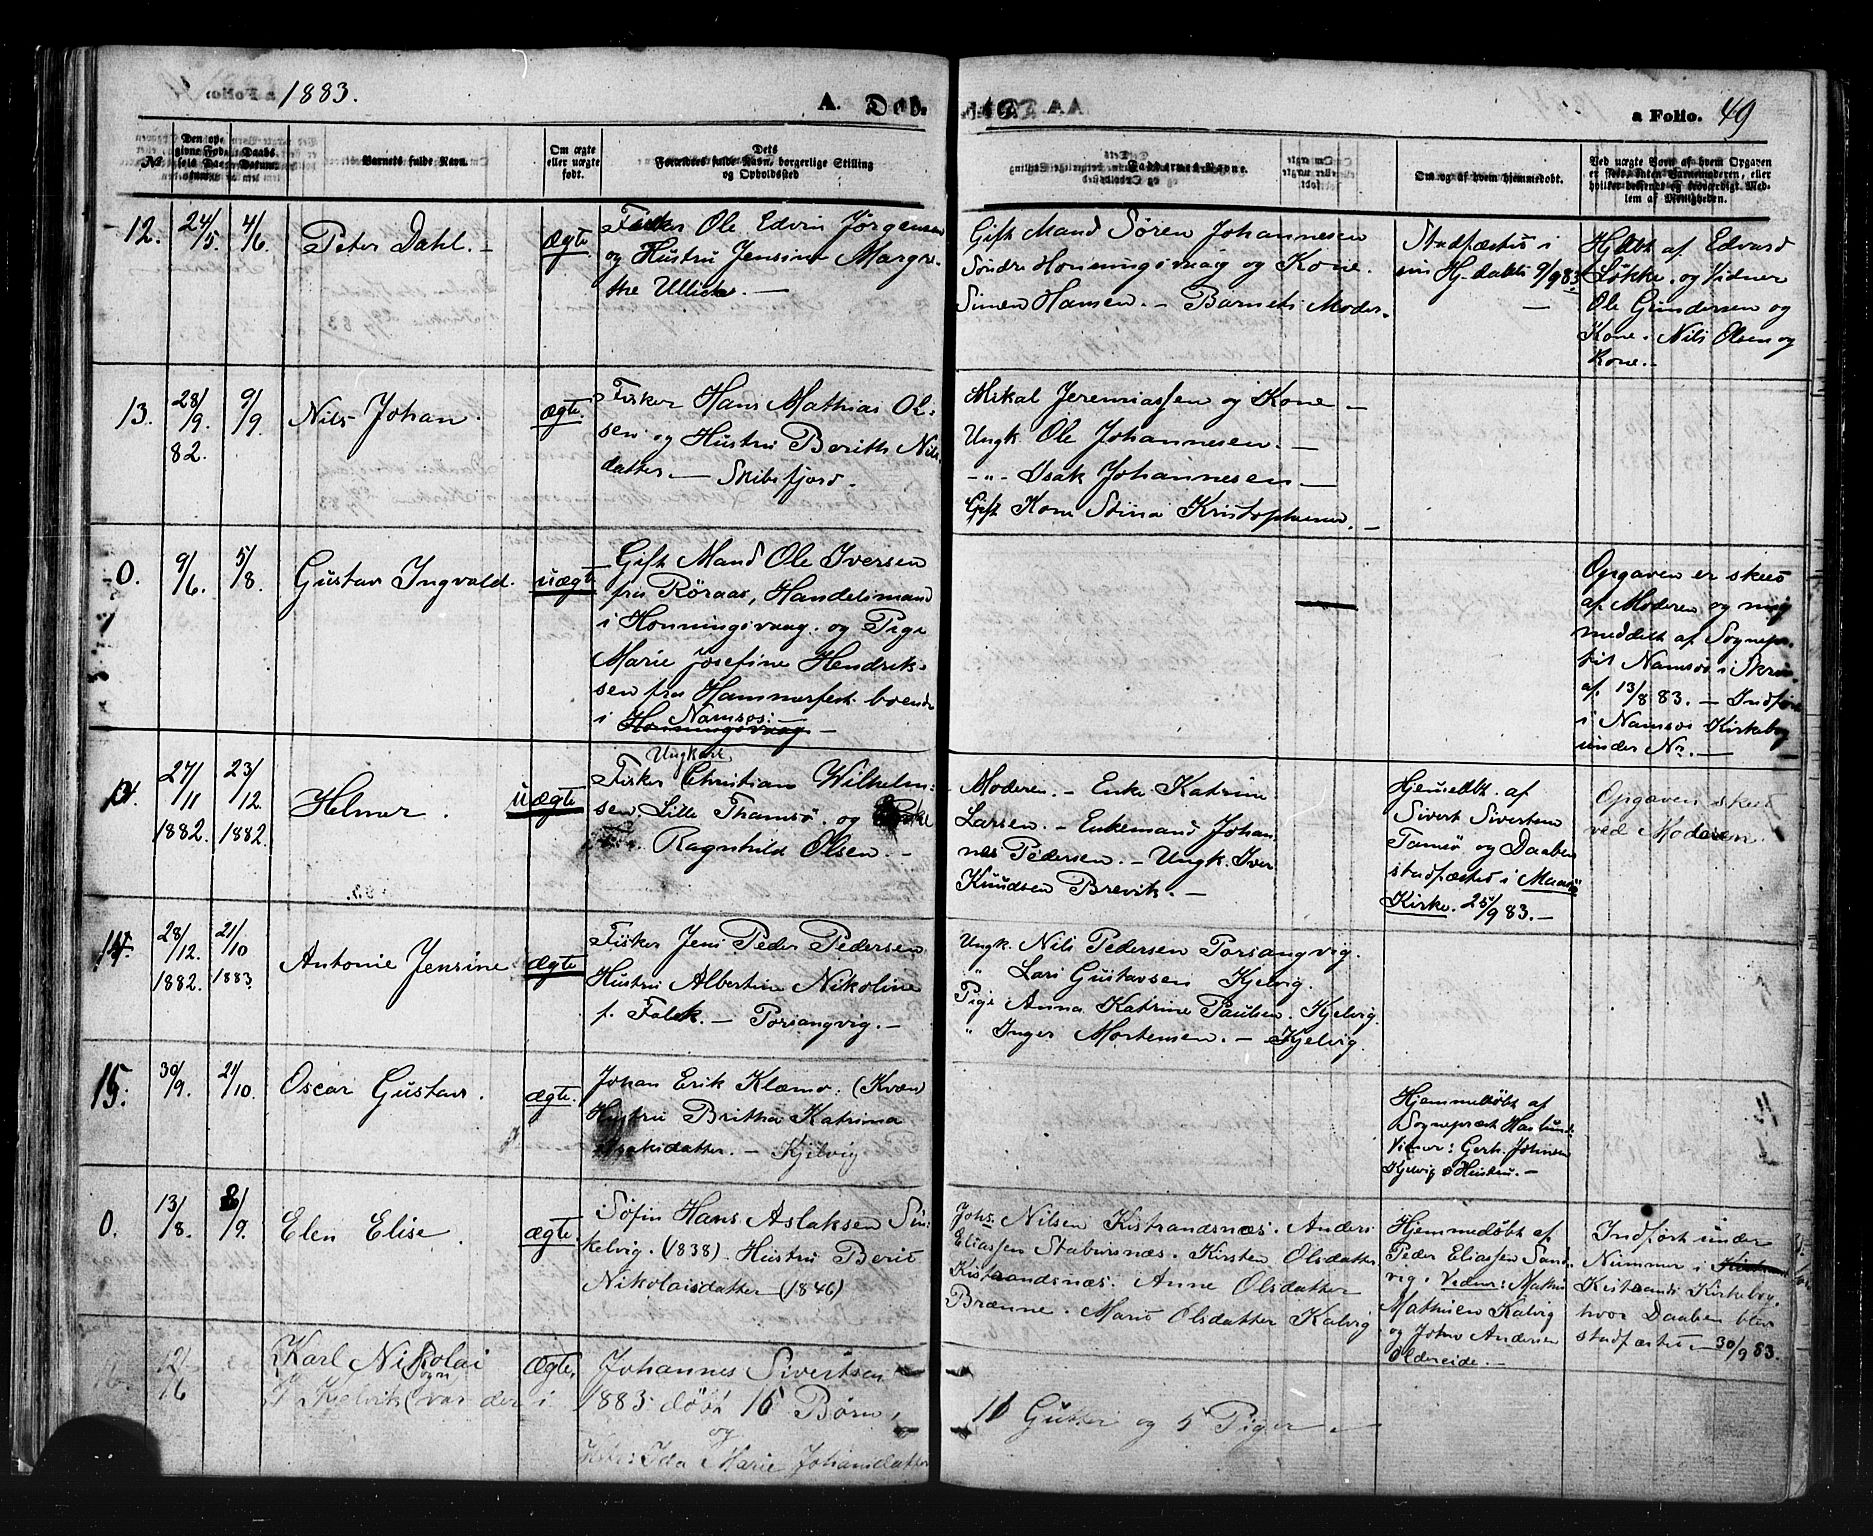 1883.
A. Døb.
a Folio. 49
No.
Barnets fulde Navn.
Daabs Datum.
Om ægte eller uægte født.
Dets Forældres fulde Navn, borgerlige Stilling og Opholdssted
Faddernes Navne.
Om og af hvem hjemmedøbt.
Ved uægte Børn af hvem Opgaven er skeet, uden Barnemoderen, eller hvilket dennes og troværdigt Medlem af Menigheden.
12. 24/5. 4/6. Peter Dahl. - ægte.
Fisker Ole Edvin Jørgensen
og Hustru Jensine Margre-
the Ullich. -
Gift Mand Sören Johannesen
Söndre Honningsvaag og Kone.
Simen Hansen. - Barnets Moder.
Stadfæstes i
sin Hj. daab 9/9 83.
Hjdbt af Edvard
Løkke. og Vidner
Ole Gundersen og
Kone. Nils Olsen og
Kone. -
13. 28/9. 82. 9/9. Nils Johan. ægte.
Fisker Hans Mathias Ol-
sen. og Hustru Berith Nils-
datter. - Skibsfjord.
Mikal Jeremiassen og Kone -
Ungk. Ole Johannesen. -
-"- Isak Johannesen -
Gift Kone Stina Kristophersen. -
0. 9/6. 5/8. Gustav Ingvald. uægte
Gift Mand Ole Iversen
fra Röraas, Handelsmand
i Honningsvaag. og Pige
Marie Josefine Hendrik-
sen fra Hammerfest. boende
i Honningsvaag Namsos. -
Opgaven er skeet
af Moderen og mig
meddelt af Sognepr.
til Namsos i Skriv.
af 13/8 83. - Indført
i Namsos Kirkebog
under Nr. -
27/11 1882. 23/12. 1882. Helmer. uægte
Fisker Ungkarl Christian Wilhelm-
sen. Lille Thamsö. og Pike
Ragnhild Olsen. -
Moderen. - Enke Katrine
Larsen. - Enkemand Johan-
nes Pedersen. - Ungk. Iver
Knudsen Brevik. -
Hjemmedbt. af
Sivert Sivertsen
Tamsö og Daaben
stadfæstes i Maasö
Kirke. 25/9 83. -
Opgaven skeet
ved Moderen.
14. 28/12. 1882. 21/10 1883. Antonie Jensine ægte
Fisker Jens Peder Pedersen
Hustru Albertine Nikoline
f. Falck. - Porsangvig. -
Ungk. Nils Pedersen Porsangvig.
" Lars Gustavsen Kjelvig.
Pige Anna Katrine Paulsen. Kjelvig.
" Inger Mortensen. - Kjelvig.
15. 30/9. 21/10. Oscar Gustav. ægte.
Johan Erik Klæmo. (Kvæn)
Hustru Britha Katrina
Isaksdatter. - Kjelvig
Hjemmedöbt af
Sognepræst Haslund.
Vidner: Gerh. Johnsen
Kjelvig & Hustru. -
0. 13/8. 8/9. Elen Elise. ægte.
Søfin Hans Aslaksen Sin-
kelvig. (1838). Hustru Berit
Nikolaisdatter (1846)
Johs Nilsen Kistrandsnæs. Anders
Eliassen Stabursnæs. Kirsten Olsdatter
Kistrandsnæs. Anne Olsdatter
Brænne. Marit Olsdatter Kalvig
Hjemmedöbt af
Peder Eliassen Sand-
vig. Vidner: Mathis
Mathisen Kalvig
og Johs Andersen
Oldereide. -
Indfört under
Nummer i
Kistrands Kirkebog,
hvor Daaben blev
stadfæstet - 30/9 83.
16. 12/6 Karl Nikolai ægte. Johannes Sivertsen
I Kjelvik Sogn (var der i 1883 döbt 16 Børn,
11 Gutter og 5 Piger. -
og
Ida Marie Johansdatter